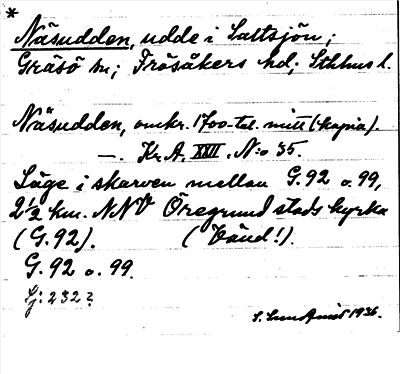 *
Näsudden, udde i Saltsjön;
Gräsö sn; Frösåkers hd; Sthlms l.
Näsudden, omkr. 1700-tal. mitt (kopia).
—. Kr.A. XXII. No 35.
Läge i skarven mellan G.92 o. 99,
2½ km. NNV Öregrund stads kyrka
(G.92). (Vänd!).
G.92 o. 99.
Lj: 232?
S. Sundqvist 1936.